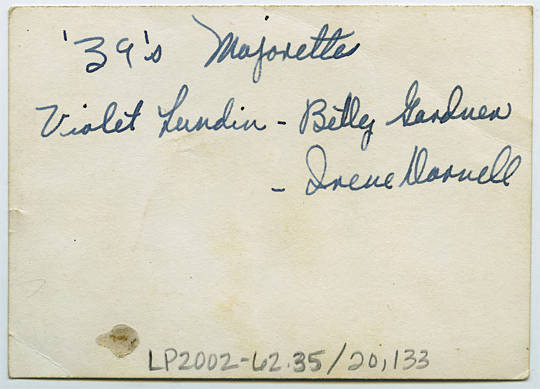 '39's Majorettes
Violet Lundin - Betty Gardner
- Irene Darnell
LP2002-62.35/20,133